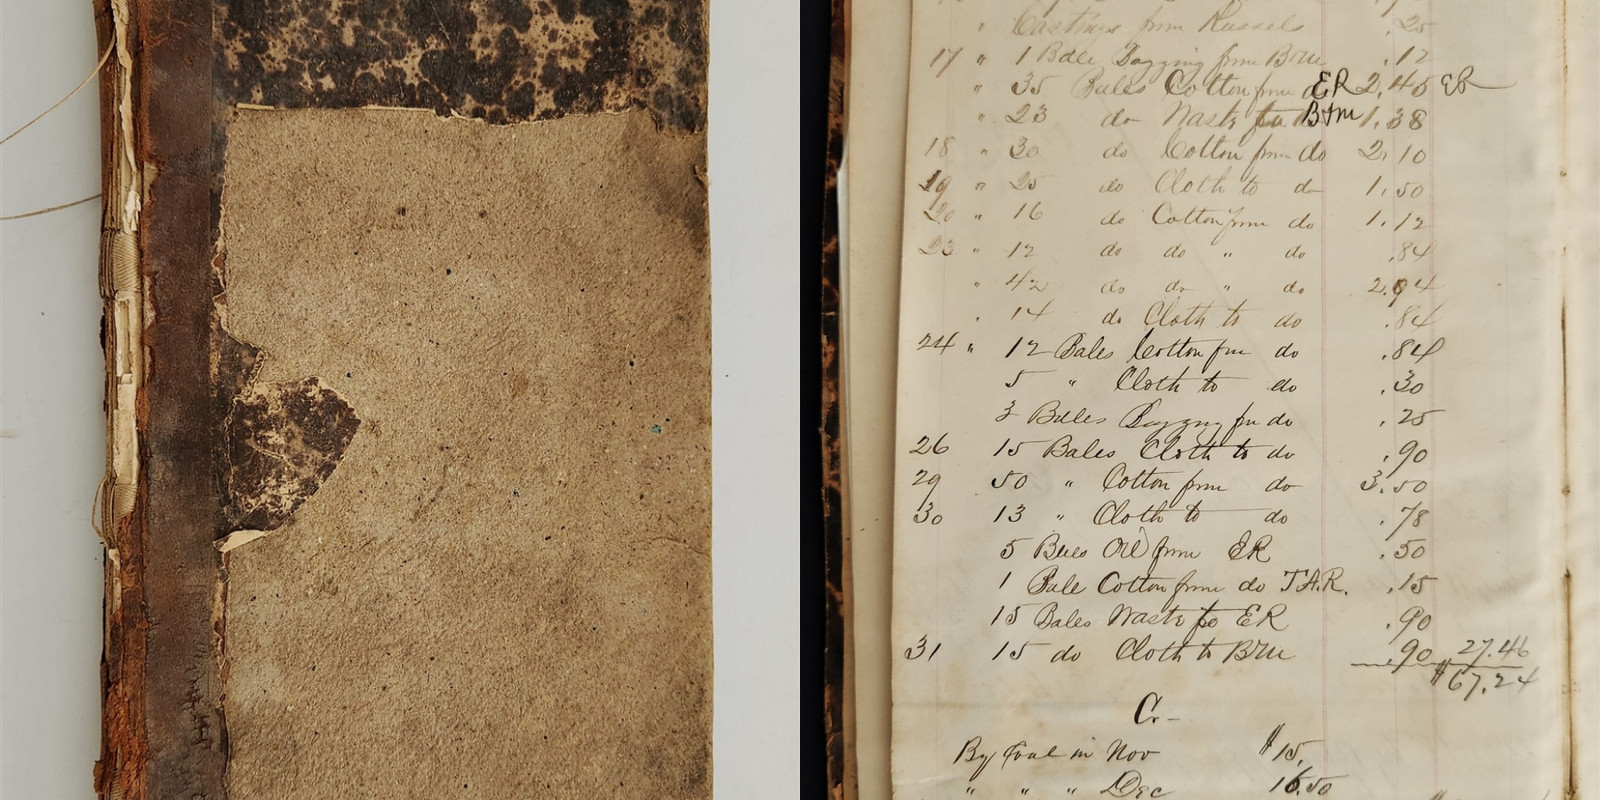 " Castings from Russels .25
17 " 1 Bdle Bagging from BM .12
" 35 Bales Cotton from ER 2.45 ER
" 23 do Waste BM 1.38
18 " 30 do Cotton from do 2.10
19 " 25 do Cloth to do 1.50
20 " 16 do Cotton from do 1.12
23 " 12 do do " do .84
" 42 do do " do 2.94
" 14 do Cloth to do .84
24 " 12 Bales Cotton fm do .84
5 " Cloth to do .30
3 Bdles Bagging fm do .25
26 15 Bales Cloth to do .90
29 50 " Cotton from do 3.50
30 13 " Cloth to do .78
5 Oil from ER .50
1 Bale Cotton from do T.A.R. .15
15 Bales Waste fo ER .90
31 15 do Cloth to BM .90 27.46
$67.24
Cr-
By Coal in Nov $15,
" " " Dec 16.50